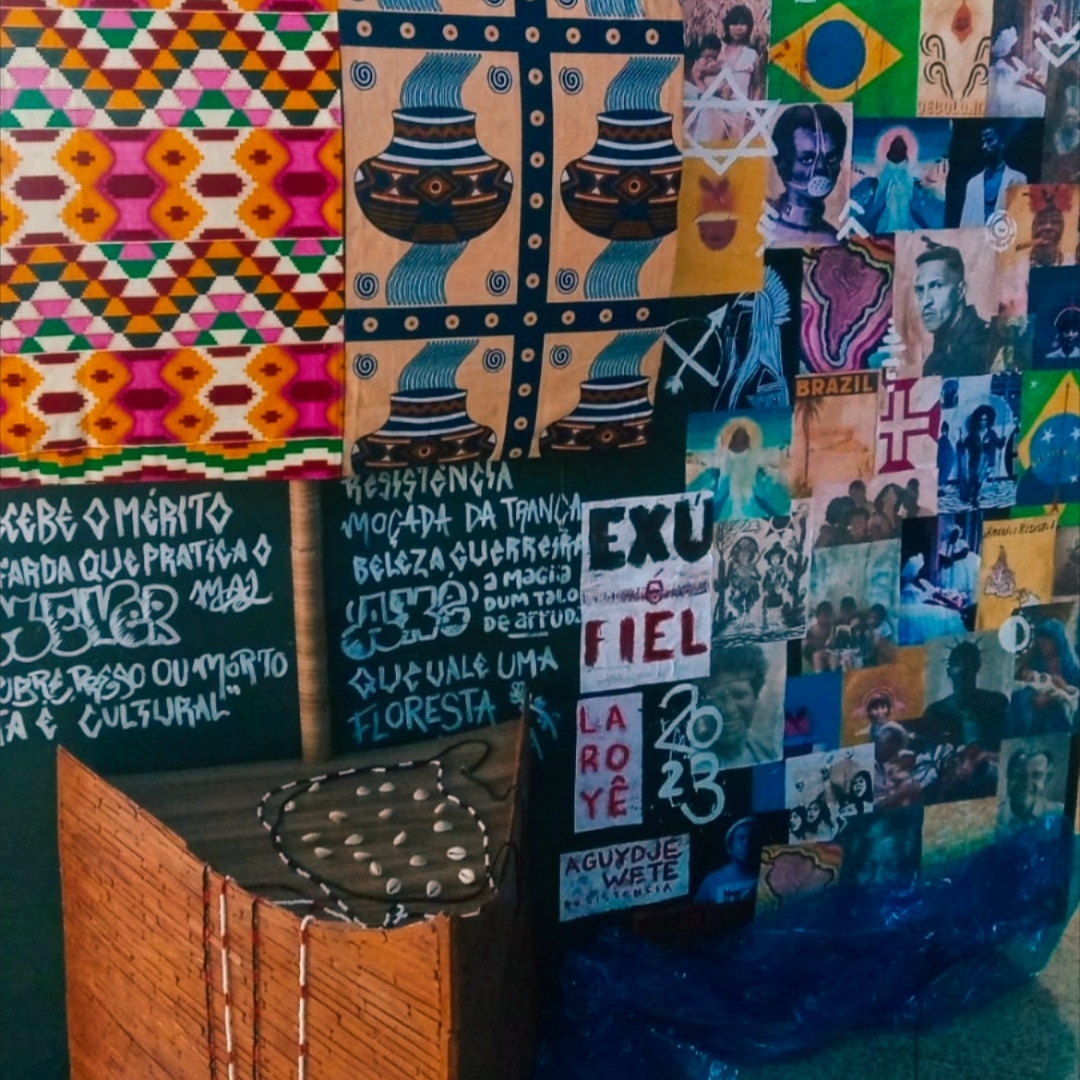 CEBE O MÉRITO
FARDA QUE PRATICA O
OU MORTO
É CULTURAL"
RESISTÊNCIA
MOÇADA DA TRANÇA
BELEZA GUERREIRA
AXÉ
a MAGIA
DUM TALO
DE ARRUD
QUE VALE UMA
FLORESTA
EXÚ
é
FIEL
LA
RO
YÊ
20
23
AGUYDJE
WETE
RESISTENCIA
BRAZIL